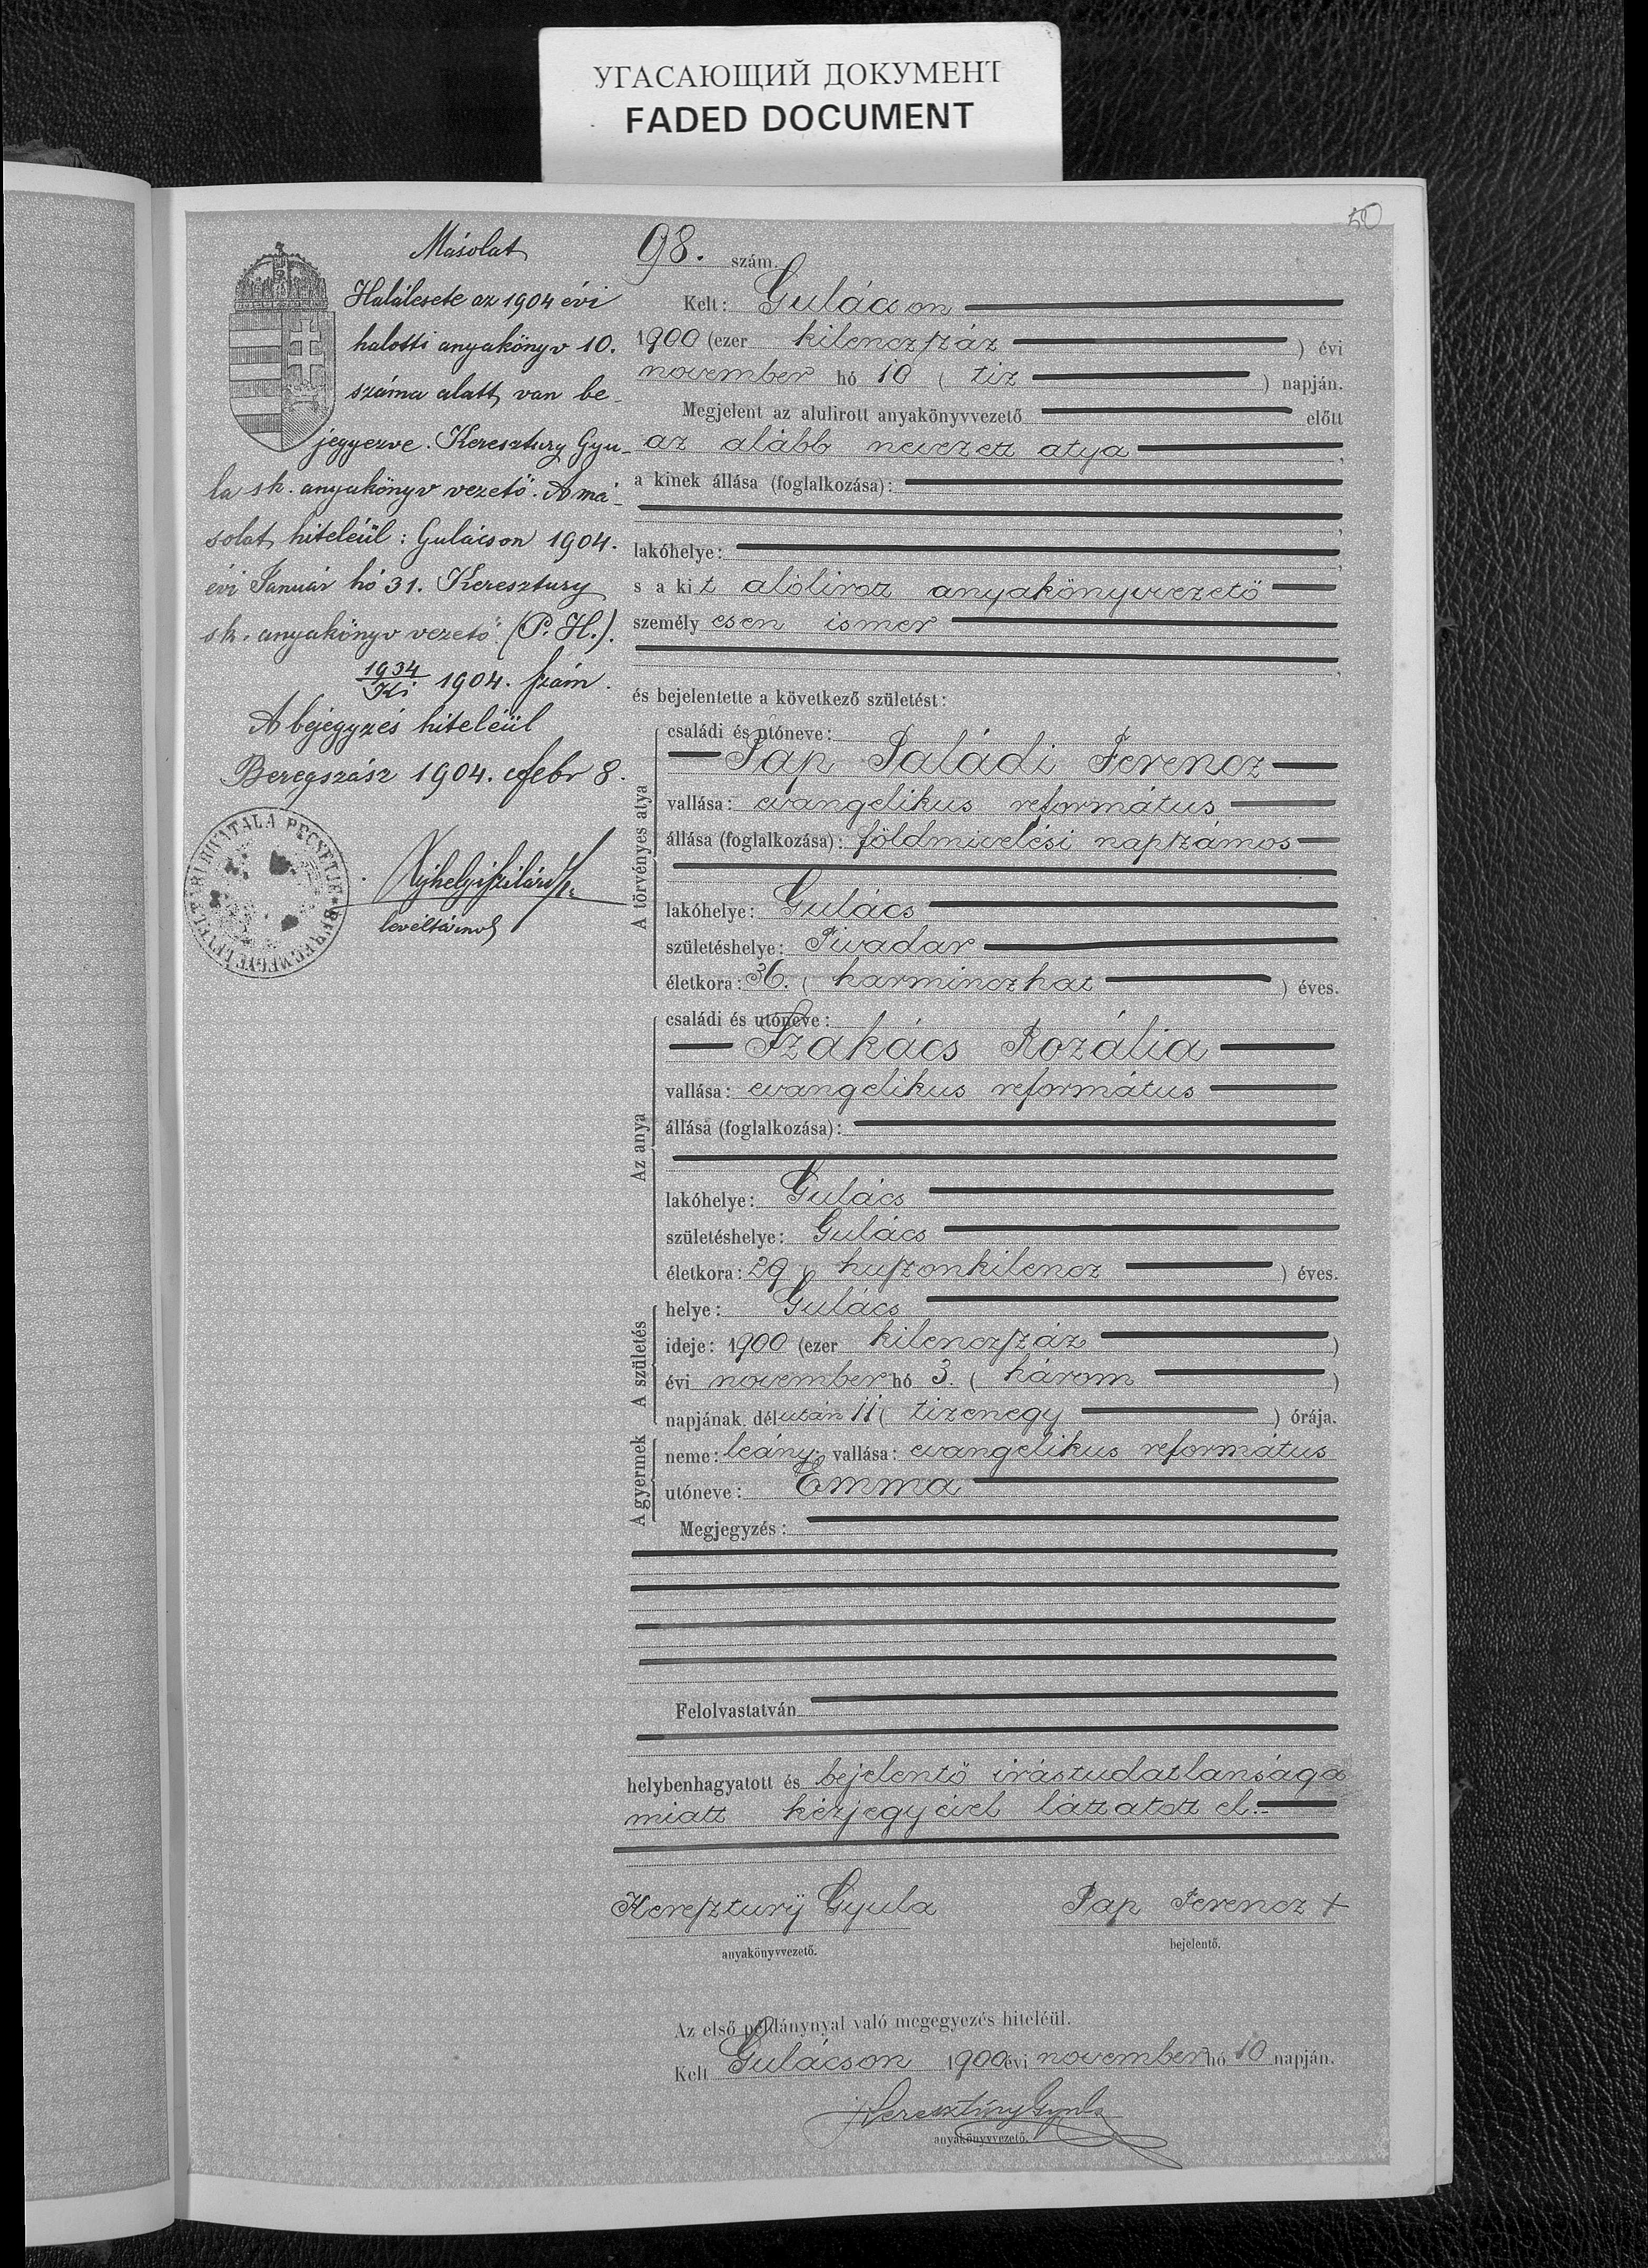 УГАСАЮЩИЙ ДОКУМЕНТ
FADED DOCUMENT
50
Másolat
Halálesete az 1904 évi
halotti anyakönyv 10.
száma alatt van be-
jegyezve. Keresztury Gyu-
la sk. anyakönyv vezető. A má-
solat hiteléül: Gulácson 1904.
évi Január hó 31. Keresztury
sk. anyakönyv vezető (P. H.).
1934/Ki 1904. szám.
A bejegyzés hiteléül
Beregszász 1904. febr 8.
Ujhelyi Szilárd
levéltárnok
98. szám.
Kelt: Gulácson
1900 (ezer kilenczszáz ) évi
november hó 10 ( tiz ) napján.
Megjelent az alulirott anyakönyvvezető előtt
az alább nevezett atya ,
a kinek állása (foglalkozása):
,
lakóhelye: ,
s a kit alólirott anyakönyvvezető
személyesen ismer
,
és bejelentette a következő születést:
A törvényes atya
családi és utóneve:
Pap Paládi Ferencz
vallása: evangelikus református
állása (foglalkozása): földmivelési napszámos
lakóhelye: Gulács
születéshelye: Tivadar
életkora: 36. ( harminczhat ) éves.
Az anya
családi és utóneve:
Szakács Rozália
vallása: evangelikus református
állása (foglalkozása):
lakóhelye: Gulács
születéshelye: Gulács
életkora: 29 ( huszonkilencz ) éves.
A születés
helye: Gulács
ideje: 1900 (ezer kilenczszáz )
évi november hó 3. ( három )
napjának délután 11 ( tizenegy ) órája.
A gyermek
neme: leány; vallása: evangelikus református
utóneve: Emma
Megjegyzés:
Felolvastatván
helybenhagyatott és bejelentő irástudatlansága
miatt kézjegyével láttatott el.-
Keresztury Gyula Pap Ferencz +
anyakönyvvezető. bejelentő.
Az első példánynyal való megegyezés hiteléül.
Kelt Gulácson 1900 évi november hó 10 napján.
Keresztúry Gyula
anyakönyvvezető.